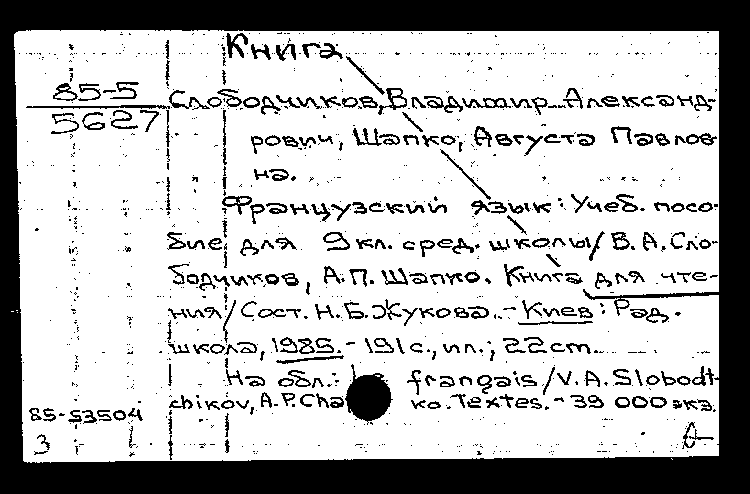 Книга
85-5
5627
Слободчиков, Владимир Александ-
рович, Шапко, Августа Павлов-
на.
Французский язык: Учеб. посо-
бие для 9 кл. сред. школы/В.А.Сло-
бодчиков, А.П. Шапко. Книга для чте-
ния/Сост. Н.Б.Жукова. - Киев: Рад.
школа, 1985. - 191 с., ил.; 22 cm.
На обл.: français/V.A. Slobodt-
chikov, A.P. ko. Textes. - 39 000 экз.
85-53504
3